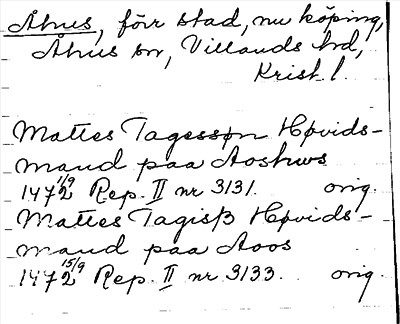 Åhus, förr stad, nu köping,
Åhus sn, Villands hd,
Krist. l.
Mattes Tagessøn Høvids-
mand paa Aoshws
1472 1/9 Rep. II nr 3131. orig.
Mattes Tagisß Høvids-
mand paa Aoos
1472 15/9 Rep. II nr 3133. orig.